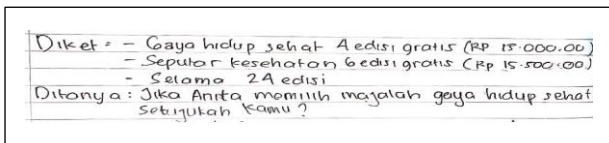 Diket : - Gaya hidup sehat 4 edisi gratis (RP 15.000.00)
- Seputar kesehatan 6 edisi gratis (Rp 15.500.00)
- Selama 24 edisi
Ditanya : Jika Anita memilih majalah gaya hidup sehat
setujukah kamu?